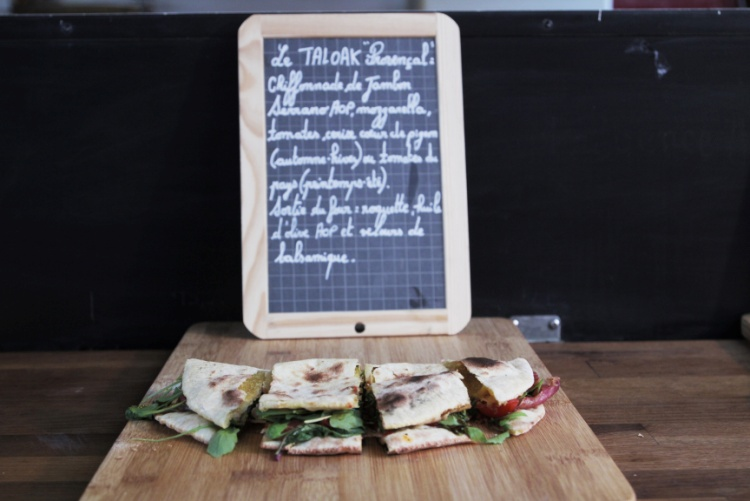 Le TALOAK "Provençal":
Chiffonnade de Jambon
Serrano AOP, mozzarella,
tomates cerise cœur de pigeon
(automne-hiver) ou tomates du
pays (printemps-été).
Sortie du four : roquette, huile
d'olive AOP et velours de
balsamique.